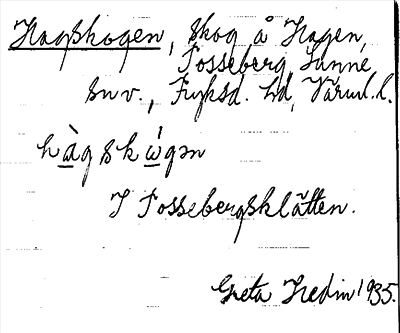 Hagskogen, skog å Hagen,
Tosseberg, Sunne
sn v., Fryksd. hd, Värml. l.
hàgskẃgən
I Tossebergsklätten.
Greta Hedin 1935.